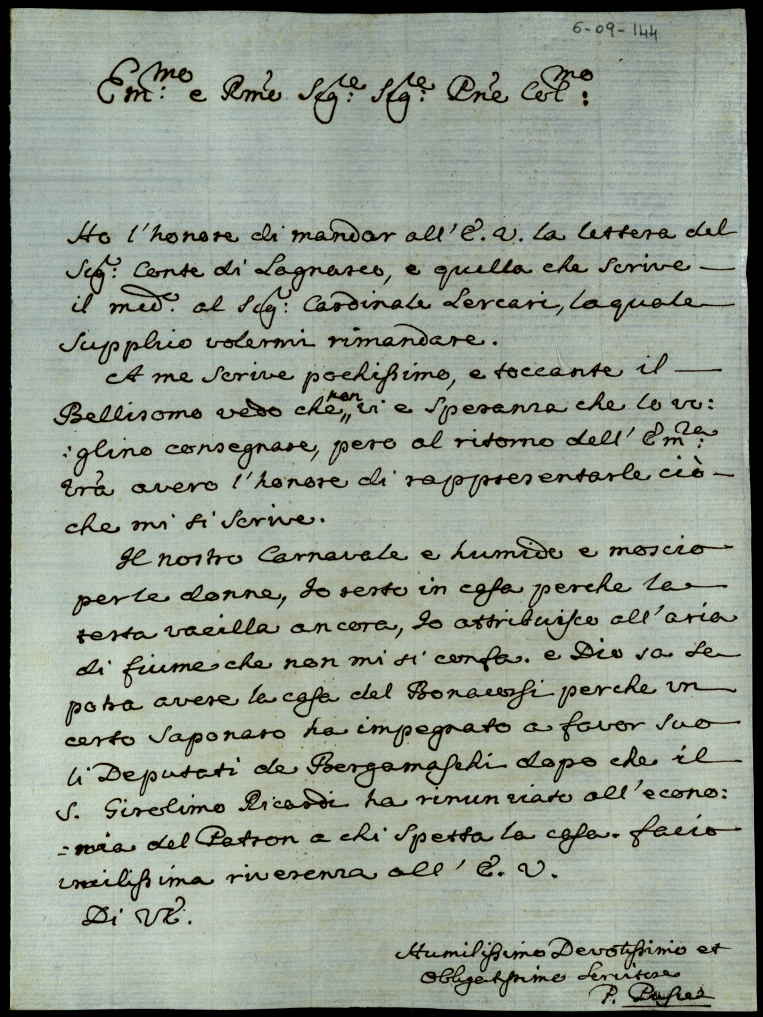 6-09-144
Em:mo e Rme Sigr:e Sigr:e Pne Col:mo
Ho l'honore di mandar all'E. V. la lettera del
Sigr: Conte di Lagnasco, e quella che scrive —
il med: al Sigr: Cardinale Lercari, la quale
supplico volermi rimandare.
A me scrive pochissimo, e toccante il —
Bellisomo vedo che non vi e speranza che lo vo:
:glino consegnare, pero al ritorno dell' Em:za
Vra avero l'honore di rappresentarle ciò —
che mi si scrive.
Il nostro Carnavale e humido e moscio
per le donne, Io resto in casa perche la
testa vacilla ancora, Io attribuisco all'aria
di fiume che non mi si confa. e Dio sa se
potra avere la casa del Bonacossi perche un
certo Saponaro ha impegnato a favor suo
li Deputati de Bergamaschi dopo che il
S. Girolimo Ricardi ha rinunziato all'econo:
:mia del Patron a chi spetta la casa. facio
umilissima riverenza all' E. V.
Di VE.
Humilissimo Devotissimo et
Obligatissimo Servitore
P.